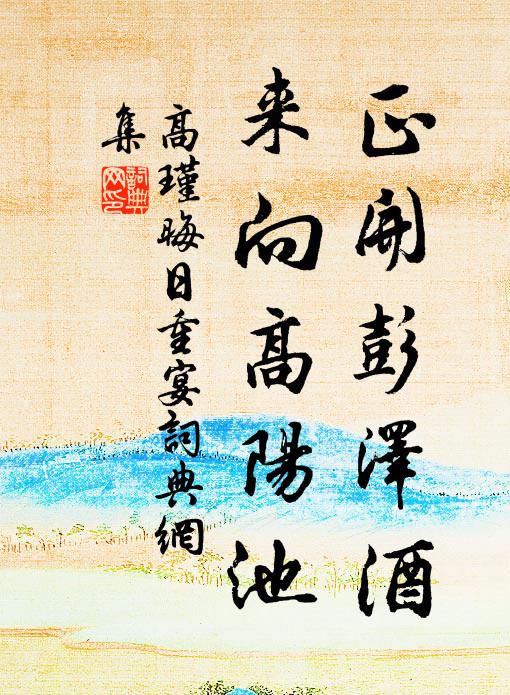 正開彭澤酒
来向高陽池
高瑾晦日重宴詞典網
集
詞典
网印